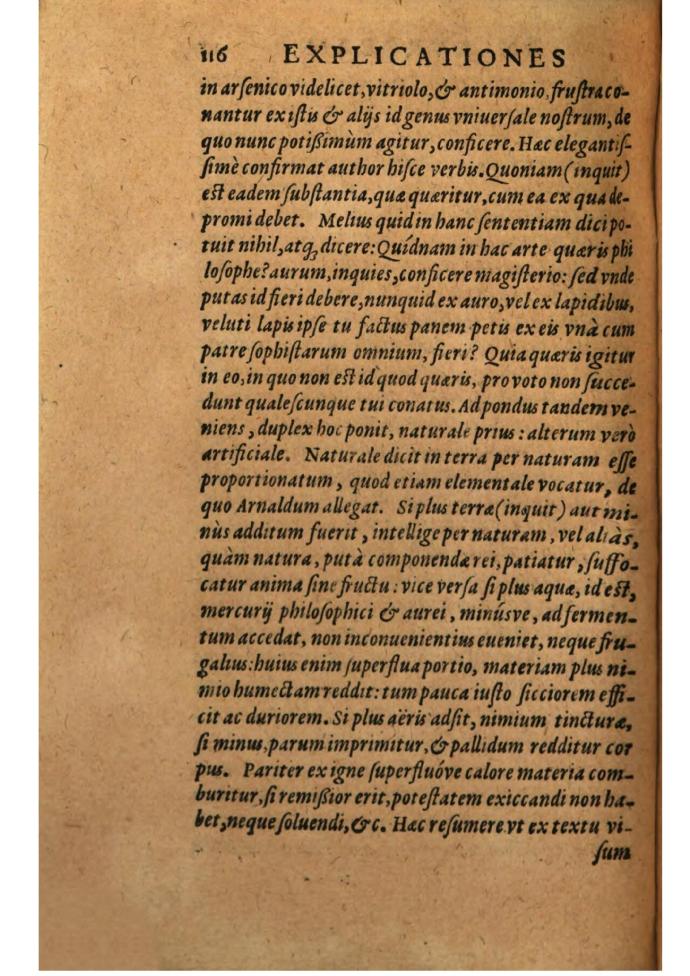 116 EXPLICATIONES
in arſenico videlicet, vitriolo, & antimonio, fruſtra co-
nantur ex iſtis & alijs id genus vniuerſale noſtrum, de
quo nunc potißimùm agitur, conficere. Hæc elegantiſ-
ſimè confirmat author hiſce verbis. Quoniam (inquit)
eſt eadem ſubſtantia, quæ quæritur, cum ea ex qua de-
promi debet. Melius quid in hanc ſententiam dici po-
tuit nihil, atq; dicere: Quídnam in hac arte quæris phi
loſophe? aurum, inquies, conficere magiſterio: ſed vnde
putas id fieri debere, nunquid ex auro, vel ex lapidibus,
veluti lapis ipſe tu factus panem petis ex eis vnà cum
patre ſophiſtarum omnium, fieri? Quia quæris igitur
in eo, in quo non eſt id quod quæris, pro voto non ſucce-
dunt qualeſcunque tui conatus. Ad pondus tandem ve-
niens, duplex hoc ponit, naturale prius: alterum verò
artificiale. Naturale dicit in terra per naturam eſſe
proportionatum, quod etiam elementale vocatur, de
quo Arnaldum allegat. Si plus terræ (inquit) aut mi-
nùs additum fuerit, intellige per naturam, vel aliàs,
quàm natura, putà componendæ rei, patiatur, ſuffo-
catur anima ſine fructu: vice verſa ſi plus aquæ, id eſt,
mercurij philoſophici & aurei, minúsve, ad fermen-
tum accedat, non inconuenientius eueniet, neque fru-
galius: huius enim ſuperflua portio, materiam plus ni-
mio humectam reddit: tum pauca iuſto ſicciorem effi-
cit ac duriorem. Si plus aëris adſit, nimium tincturæ,
ſi minus, parum imprimitur, & pallidum redditur cor
pus. Pariter ex igne ſuperfluóve calore materia com-
buritur, ſi remißior erit, poteſtatem exiccandi non ha-
bet, neque ſoluendi, &c. Hæc reſumere vt ex textu vi-
ſum